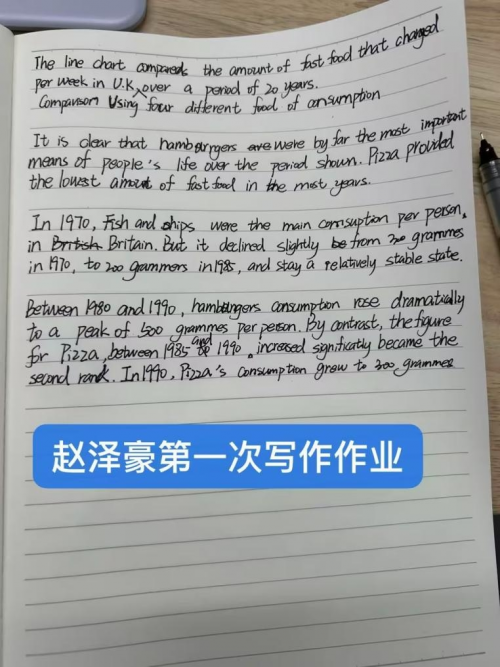 The line chart compared the amount of fast food that changed
per week in U.K, over a period of 20 years.
Comparison Using four different food of consumption
It is clear that hamburgers were by far the most important
means of people's life over the period shown. Pizza provided
the lowest amount of fast food in the most years.
In 1970, Fish and chips were the main comsuption per person,
in British Britain. But it declined slightly from 300 grammes
in 1970, to 200 grammers in 1985, and stay a relatively stable state.
Between 1980 and 1990, hambungers consumption rose dramatically
to a peak of 500 grammes per person. By contrast, the figure
for Pizza, between 1985 and 1990, increased significatly became the
second rank. In 1990, Pizza's consumption grew to 300 grammes
赵泽豪第一次写作作业